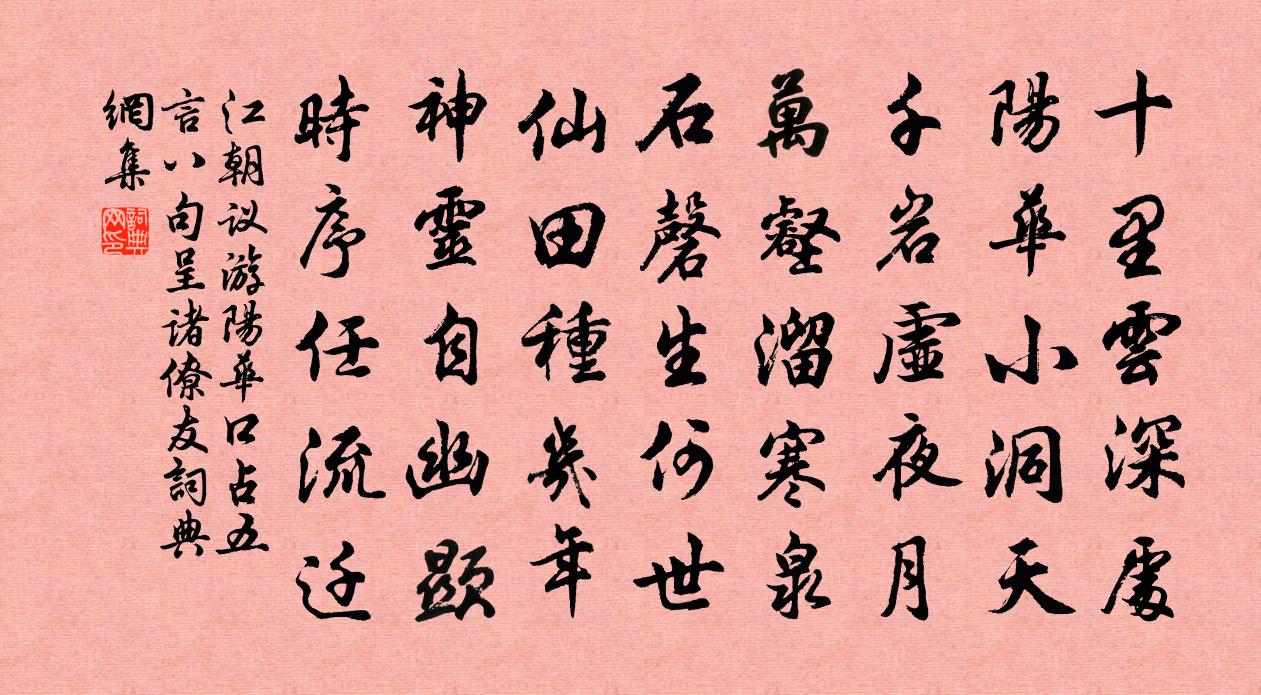 十里雲深處
陽華小洞天
千岩虛夜月
萬壑溜寒泉
石磬生何世
仙田種幾年
神靈自幽顯
時序任流迁
江朝议游陽華口占五
言八句呈诸僚友詞典
網集
詞典网印